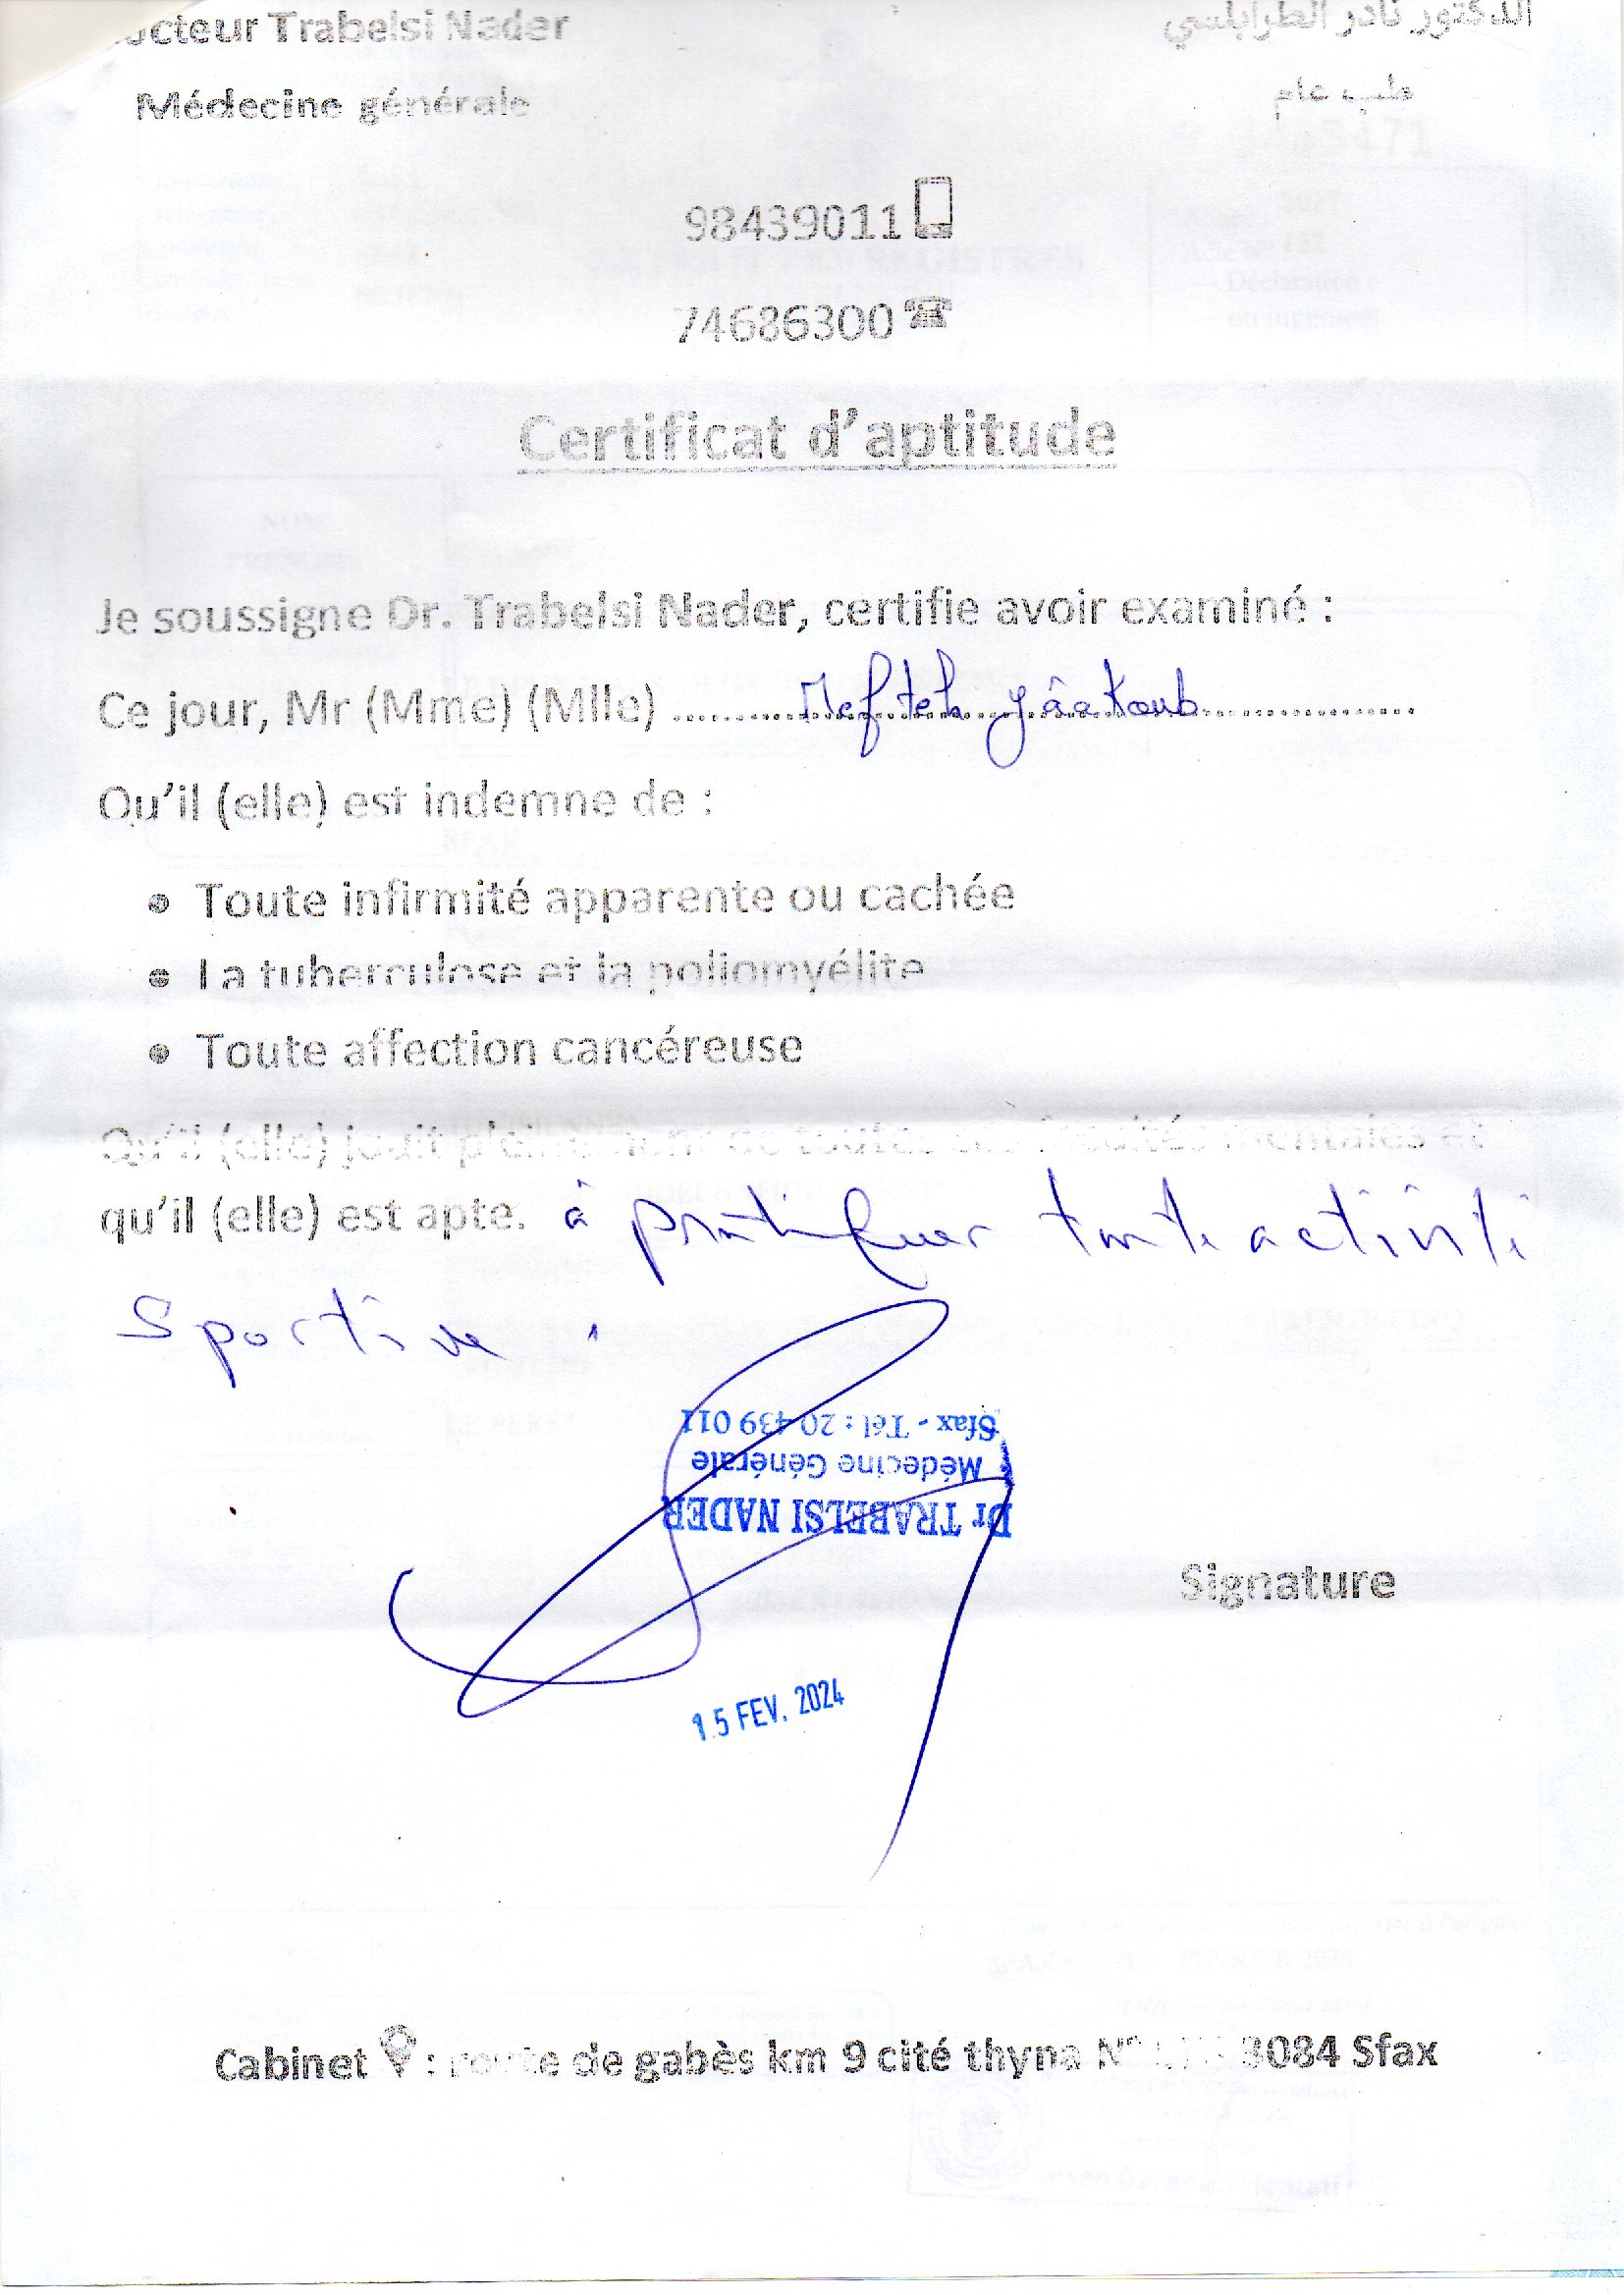 Docteur Trabelsi Nader
الدكتور نادر الطرابلسي
Médecine générale
طب عام
98439011
74686300
Certificat d'aptitude
Je soussigne Dr. Trabelsi Nader, certifie avoir examiné :
Ce jour, Mr (Mme) (Mlle) ........Mefteh Yâakoub........
Qu'il (elle) est indemne de :
• Toute infirmité apparente ou cachée
• La tuberculose et la poliomyélite
• Toute affection cancéreuse
Qu'il (elle) jouit pleinement de toutes ses facultés mentales et
qu'il (elle) est apte. à pratiquer toute activité
Sportive .
Sfax - Tél : 20 439 011
Médecine Générale
Dr TRABELSI NADER
Signature
15 FEV. 2024
Cabinet : route de gabès km 9 cité thyna N° 3084 Sfax